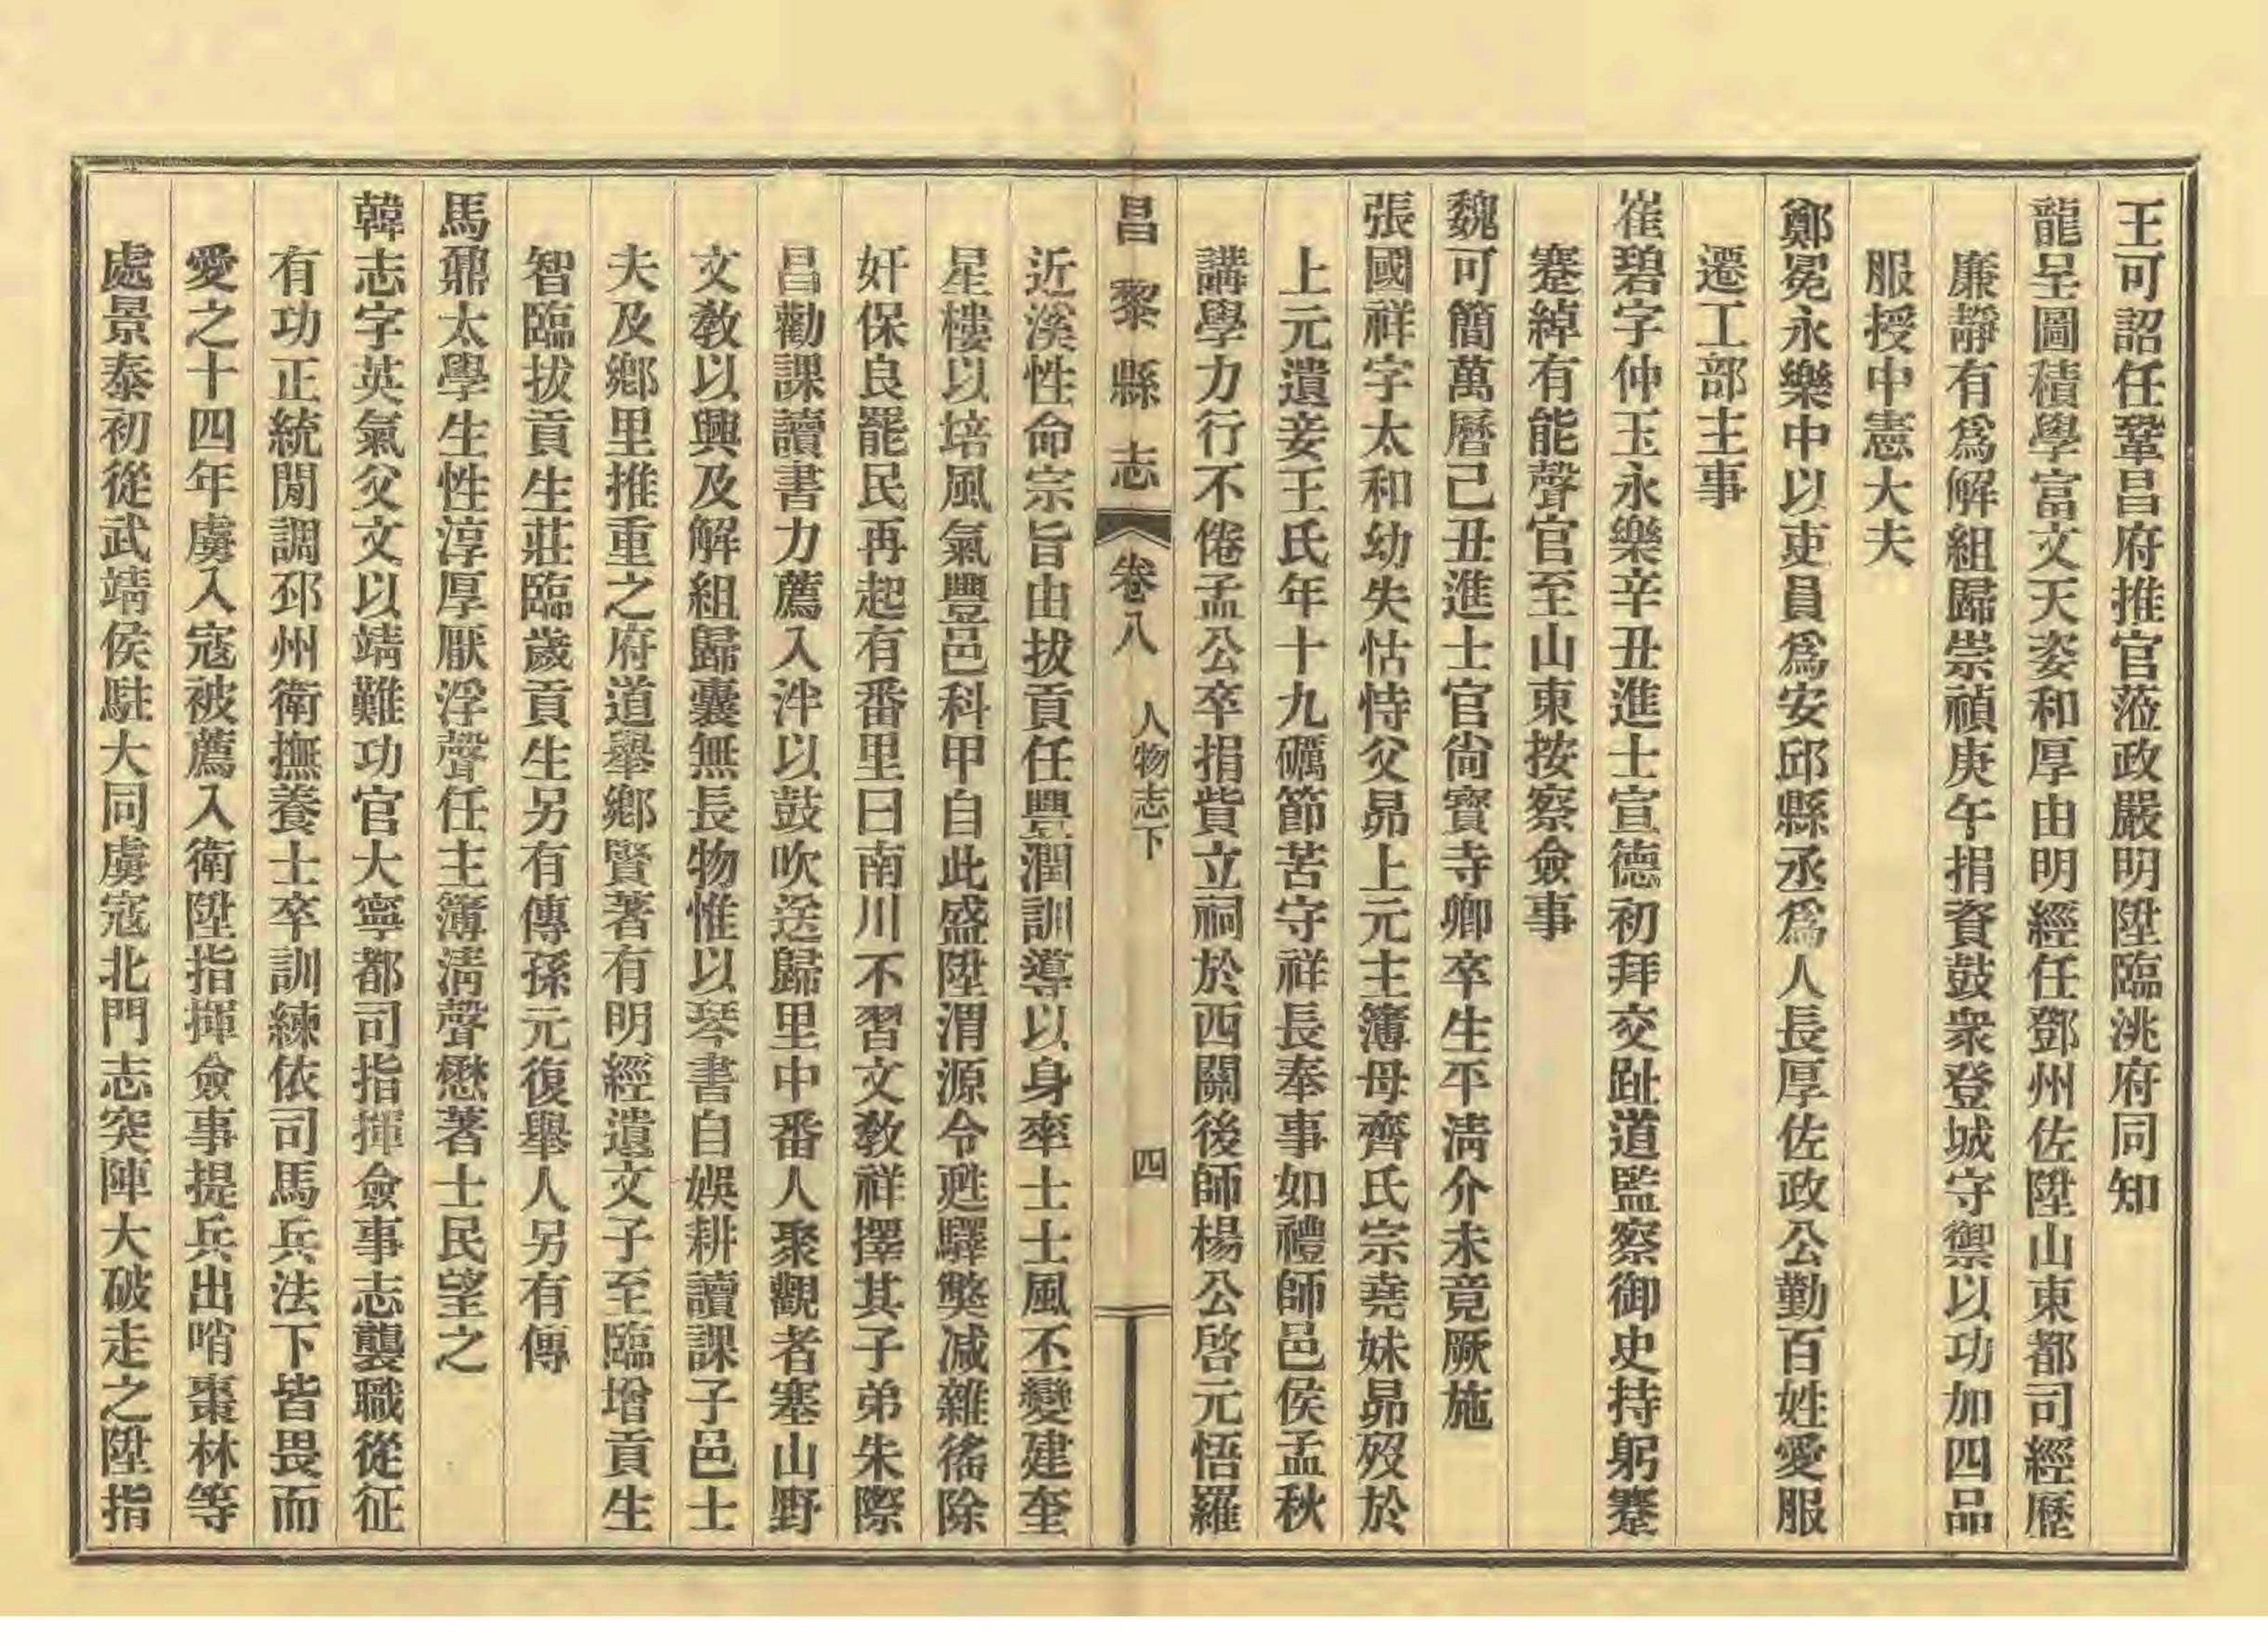 王可詔任鞏昌府推官蒞政嚴明陞臨洮府同知
龍呈圖積學富文天姿和厚由明經任鄧州佐陞山東都司經歷
廉靜有爲解組歸崇禎庚午捐資鼓衆登城守禦以功加四品
服授中憲大夫
鄭冕永樂中以吏員爲安邱縣丞爲人長厚佐政公勤百姓愛服
遷工部主事
崔碧字仲玉永樂辛丑進士宣德初拜交趾道監察御史持躬蹇
蹇綽有能聲官至山東按察僉事
魏可簡萬曆己丑進士官尙寶寺卿卒生平淸介未竟厥施
張國祥字太和幼失怙恃父昴上元主簿母齊氏宗堯妹昴歿於
上元遺妾王氏年十九礪節苦守祥長奉事如禮師邑侯孟秋
講學力行不倦孟公卒捐貲立祠於西關後師楊公啓元悟羅
昌黎縣志
卷八
人物志下
四
近溪性命宗旨由拔貢任豐潤訓導以身率士士風丕變建奎
星樓以培風氣豐邑科甲自此盛陞渭源令甦驛獘减雜徭除
奸保良罷民再起有番里曰南川不習文敎祥擇其子弟朱際
昌勸課讀書力薦入泮以鼓吹送歸里中番人聚觀者塞山野
文敎以興及解組歸囊無長物惟以琴書自娛耕讀課子邑士
夫及鄕里推重之府道舉鄕賢著有明經遺文子至臨增貢生
智臨拔貢生莊臨歲貢生另有傳孫元復舉人另有傳
馬鼐太學生性淳厚厭浮聲任主簿淸聲懋著士民望之
韓志字英氣父文以靖難功官大寧都司指揮僉事志襲職從征
有功正統閒調邳州衛撫養士卒訓練依司馬兵法下皆畏而
愛之十四年虜入寇被薦入衛陞指揮僉事提兵出哨棗林等
處景泰初從武靖侯駐大同虜寇北門志突陣大破走之陞指